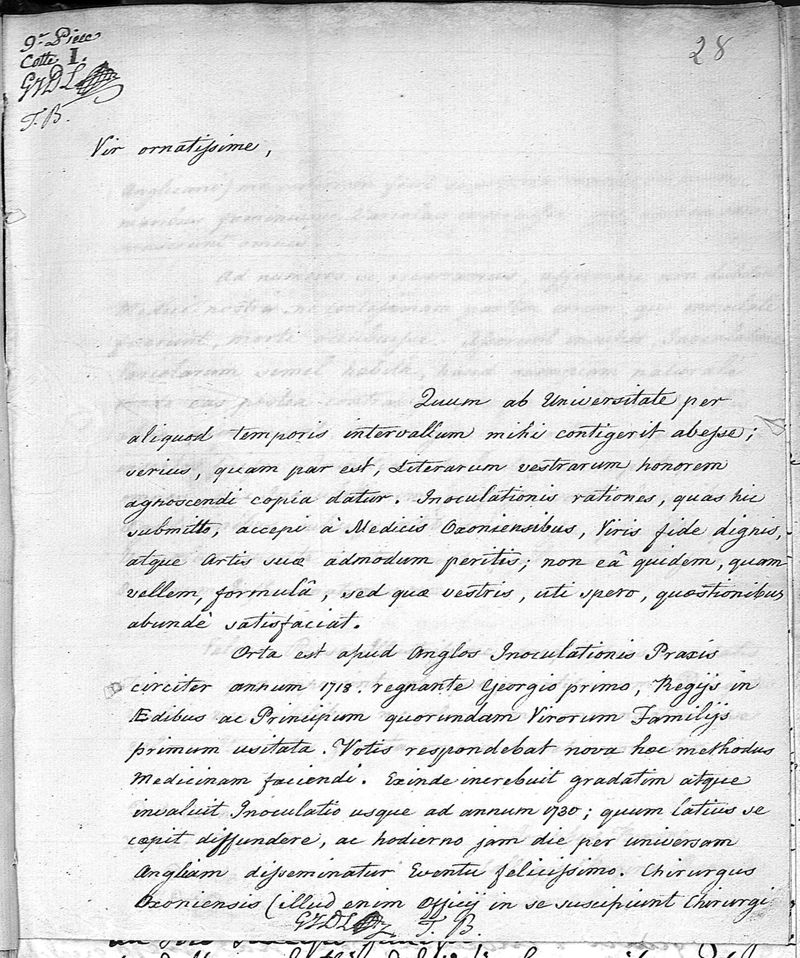 9e Piece
Cotte I.
G V D L
T. B.
28
Vir ornatissime,
Quum ab Universitate per
aliquod temporis intervallum mihi contigerit abesse;
serius, quam par est, Literarum vestrarum honorem
agnoscendi copia datur. Inoculationis rationes, quas hic
submitto, accepi à Medicis Oxoniensibus, Viris fide dignis,
atque Artis suæ admodum peritis; non eâ quidem, quam
vellem, formulâ, sed quæ vestris, uti spero, quæstionibus
abundè satisfaciat.
Orta est apud Anglos Inoculationis Praxis
circiter annum 1718. regnante Georgio primo, Regijs in
Ædibus ac Principum quorundam Virorum Familijs
primum usitata. Votis respondebat nova hæc methodus
Medicinam faciendi. Exinde increbuit gradatim atque
invaluit Inoculatio usque ad annum 1730; quum latius se
cœpit diffundere, ac hodierno jam die per universam
Angliam disseminatur Eventu felicissimo. Chirurgus
Oxoniensis (illud enim Officij in se suscipiunt Chirurgi
G V D L T. B.